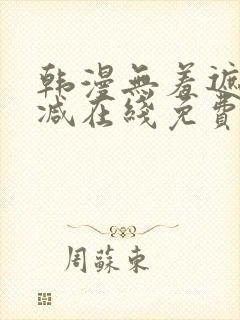 韩漫無羞遮
减在綫免費
周蘇東